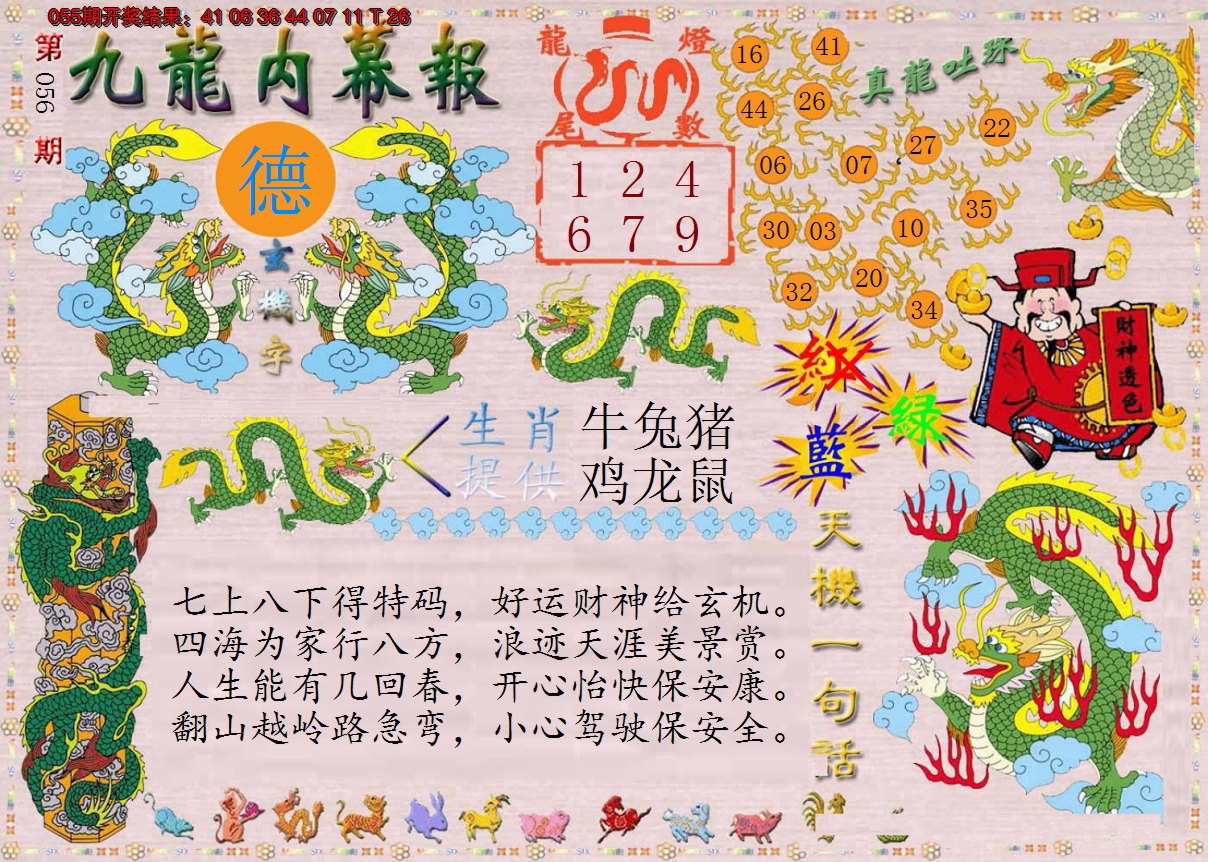 055期开奖结果：41 06 36 44 07 11 T 26
第056期
九龍内幕報
德
玄機字
龍燈尾數
1 2 4
6 7 9
真龍吐珠
16
41
44
26
06
07
27
22
30
03
10
35
32
20
34
財神透色
紅
綠
藍
生肖提供
牛兔猪
鸡龙鼠
天機一句話
七上八下得特码，好运财神给玄机。
四海为家行八方，浪迹天涯美景赏。
人生能有几回春，开心怡快保安康。
翻山越岭路急弯，小心驾驶保安全。